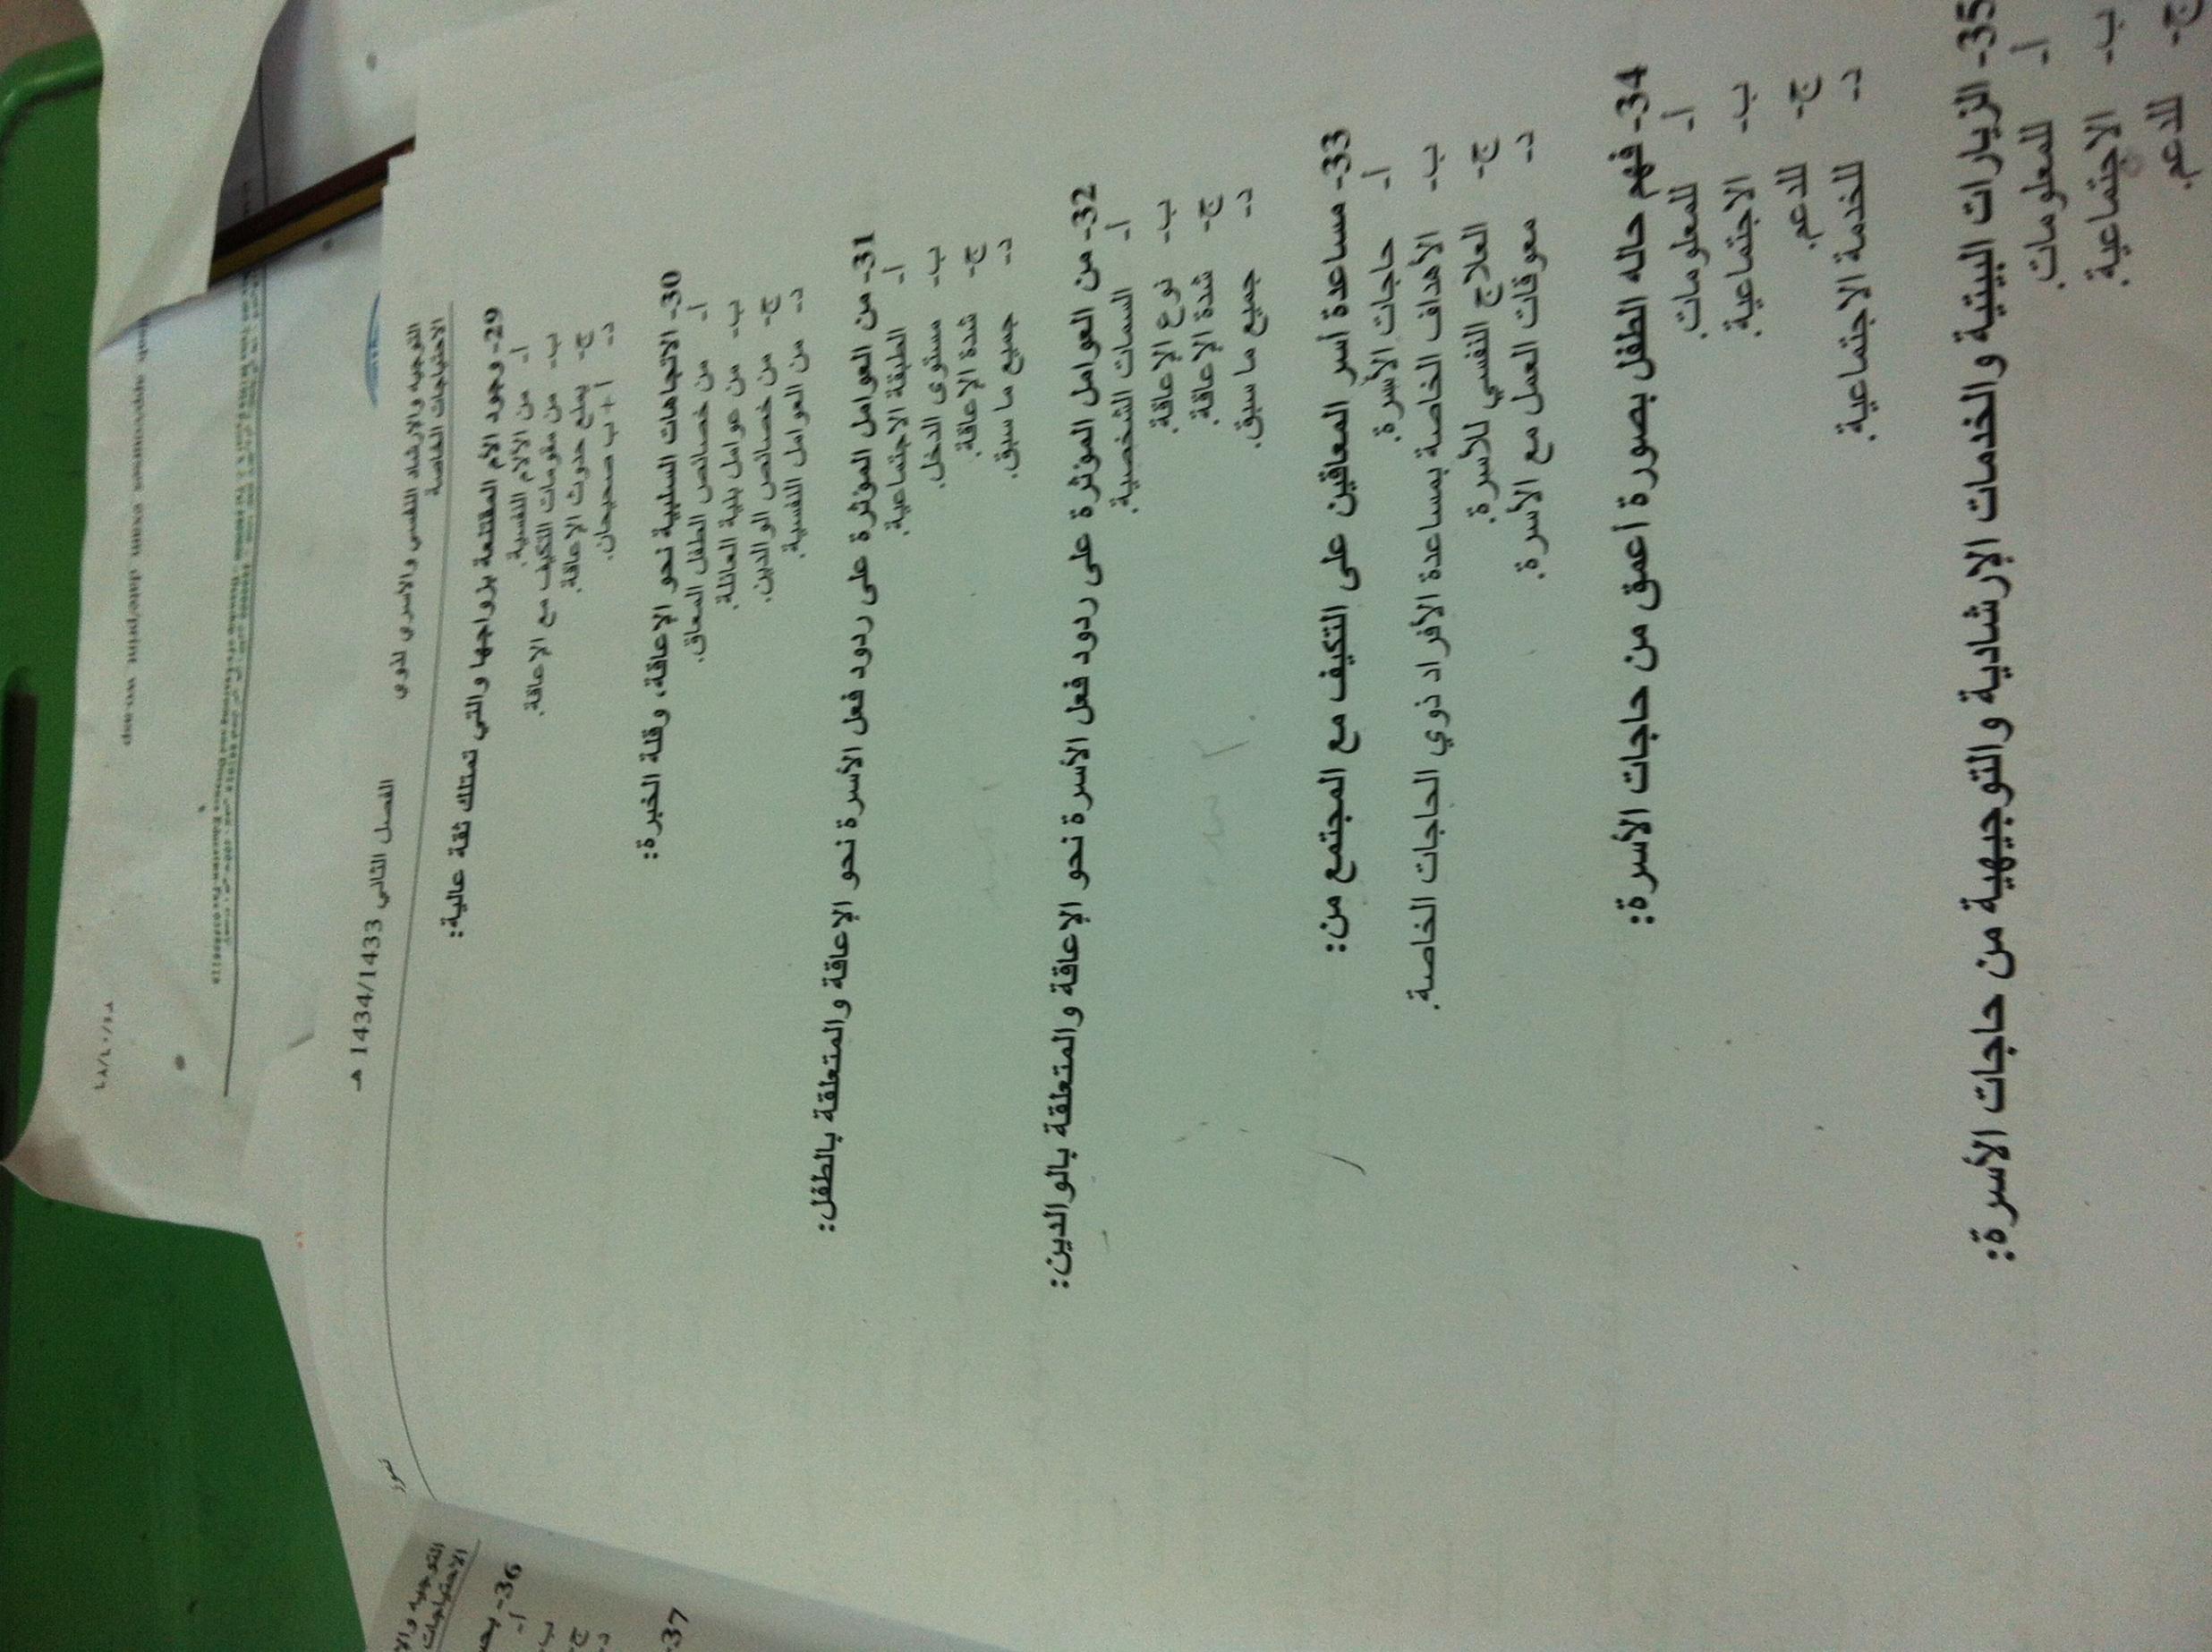 التوجيه والإرشاد النفسي والأسري لذوي الفصل الثاني 1434/1433 هـ
الاحتياجات الخاصة
29- وجود الأم المقتنعة بزواجها والتي تمتلك ثقة عالية:
أ- من الآلام النفسية.
ب- من مقومات التكيف مع الإعاقة.
ج- يمنع حدوث الإعاقة.
د- أ + ب صحيحان.
30- الاتجاهات السلبية نحو الإعاقة، وقلة الخبرة:
أ- من خصائص الطفل المعاق.
ب- من عوامل بنية العائلة.
ج- من خصائص الوالدين.
د- من العوامل النفسية.
31- من العوامل المؤثرة على ردود فعل الأسرة نحو الإعاقة والمتعلقة بالطفل:
أ- الطبقة الاجتماعية.
ب- مستوى الدخل.
ج- شدة الإعاقة.
د- جميع ما سبق.
32- من العوامل المؤثرة على ردود فعل الأسرة نحو الإعاقة والمتعلقة بالوالدين:
أ- السمات الشخصية.
ب- نوع الإعاقة.
ج- شدة الإعاقة.
د- جميع ما سبق.
33- مساعدة أسر المعاقين على التكيف مع المجتمع من:
أ- حاجات الأسرة.
ب- الأهداف الخاصة بمساعدة الأفراد ذوي الحاجات الخاصة.
ج- العلاج النفسي للأسرة.
د- معوقات العمل مع الأسرة.
34- فهم حاله الطفل بصورة أعمق من حاجات الأسرة:
أ- للمعلومات.
ب- الاجتماعية.
ج- للدعم.
د- للخدمة الاجتماعية.
35- الزيارات البيتية والخدمات الإرشادية والتوجيهية من حاجات الأسرة:
أ- للمعلومات.
ب- الاجتماعية.
ج- للدعم.
التوجيه والإ
الاحتياجات
36-
أ-
ب-
ج-
د-
37-